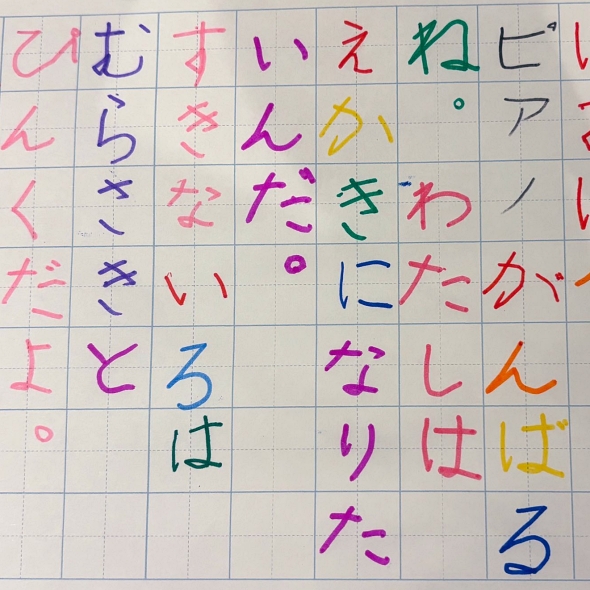 ビアノがんばる
ね。わたしは
えかきになりた
いんだ。
すきないろは
むらさきと
ぴんくだよ。